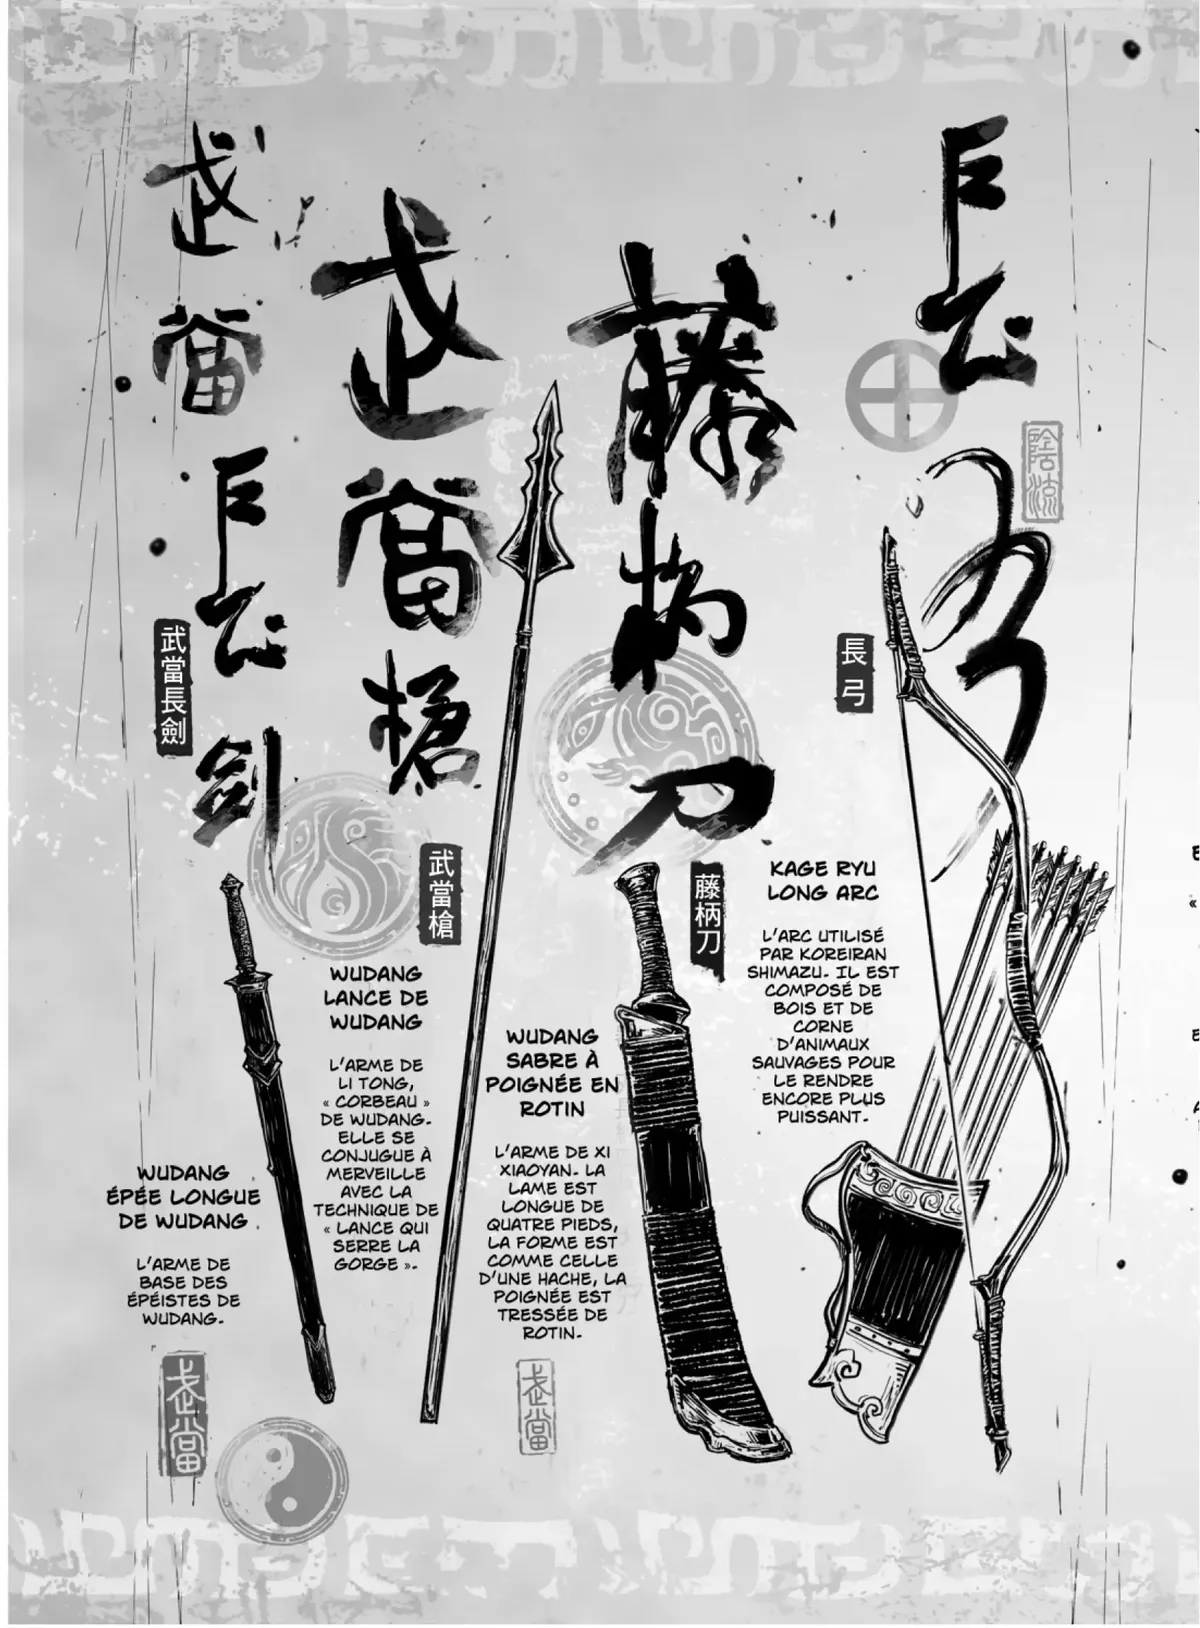 武當長劍
武當長劍
WUDANG
ÉPÉE LONGUE
DE WUDANG
L'ARME DE
BASE DES
ÉPÉISTES DE
WUDANG.
武當
武當槍
武當槍
WUDANG
LANCE DE
WUDANG
L'ARME DE
LI TONG,
« CORBEAU »
DE WUDANG.
ELLE SE
CONJUGUE À
MERVEILLE
AVEC LA
TECHNIQUE DE
« LANCE QUI
SERRE LA
GORGE ».
藤柄刀
藤柄刀
WUDANG
SABRE À
POIGNÉE EN
ROTIN
L'ARME DE XI
XIAOYAN. LA
LAME EST
LONGUE DE
QUATRE PIEDS,
LA FORME EST
COMME CELLE
D'UNE HACHE, LA
POIGNÉE EST
TRESSÉE DE
ROTIN.
武當
長弓
陰流
長弓
KAGE RYU
LONG ARC
L'ARC UTILISÉ
PAR KOREIRAN
SHIMAZU. IL EST
COMPOSÉ DE
BOIS ET DE
CORNE
D'ANIMAUX
SAUVAGES POUR
LE RENDRE
ENCORE PLUS
PUISSANT.